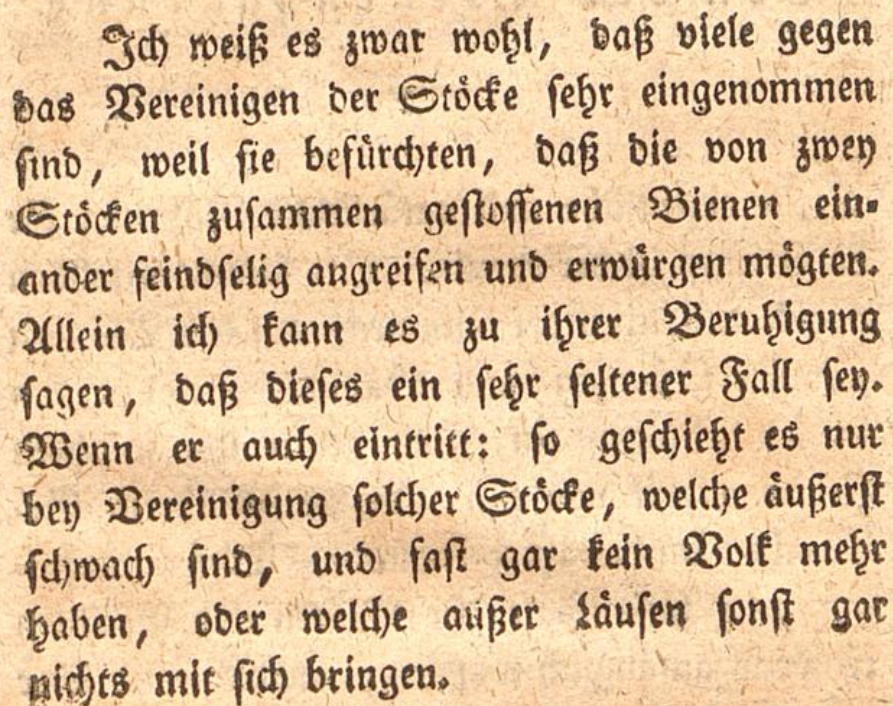 Ich weiß es zwar wohl, daß viele gegen
das Vereinigen der Stöcke sehr eingenommen
sind, weil sie befürchten, daß die von zwey
Stöcken zusammen gestossenen Bienen ein-
ander feindselig angreifen und erwürgen mögten.
Allein ich kann es zu ihrer Beruhigung
sagen, daß dieses ein sehr seltener Fall sey.
Wenn er auch eintritt: so geschieht es nur
bey Vereinigung solcher Stöcke, welche äußerst
schwach sind, und fast gar kein Volk mehr
haben, oder welche außer Läusen sonst gar
nichts mit sich bringen.